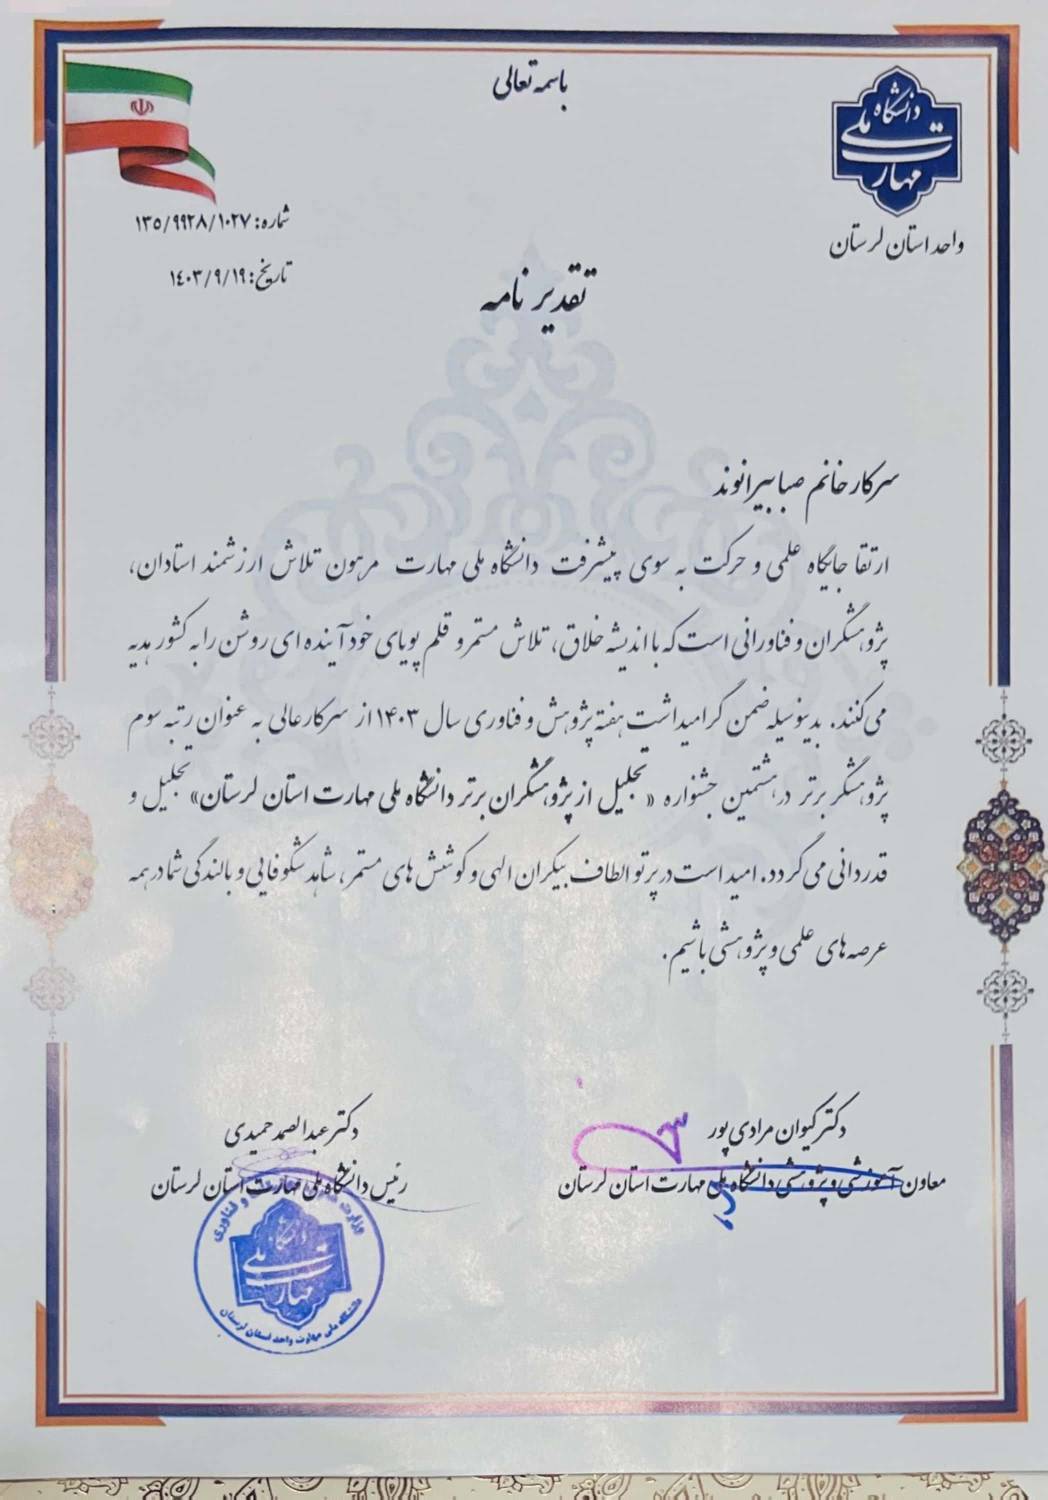 باسمه تعالی
دانشگاه ملی مهارت
واحد استان لرستان
شماره: ۱۳۵/۹۹۲۸/۱۰۲۷
تاریخ: ۱۴۰۳/۹/۱۹
تقدیر نامه
سرکار خانم صبا بیرانوند
ارتقا جایگاه علمی و حرکت به سوی پیشرفت دانشگاه ملی مهارت مرهون تلاش ارزشمند استادان،
پژوهشگران و فناورانی است که با اندیشه خلاق، تلاش مستمر و قلم پویای خود آینده ای روشن را به کشور هدیه
می کنند. بدینوسیله ضمن گرامیداشت هفته پژوهش و فناوری سال ۱۴۰۳ از سرکارعالی به عنوان رتبه سوم
پژوهشگر برتر در هشتمین جشنواره «تجلیل از پژوهشگران برتر دانشگاه ملی مهارت استان لرستان» تجلیل و
قدردانی می گردد. امید است در پرتو الطاف بیکران الهی و کوشش های مستمر، شاهد شکوفایی و بالندگی شما در همه
عرصه های علمی و پژوهشی باشیم.
دکتر کیوان مرادی پور
معاون آموزشی و پژوهشی دانشگاه ملی مهارت استان لرستان
دکتر عبدالصمد حمیدی
رئیس دانشگاه ملی مهارت استان لرستان
دانشگاه ملی مهارت
دانشگاه ملی مهارت واحد استان لرستان